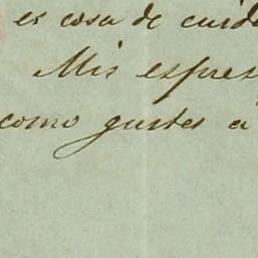 es cosa de cuida
Mis espres
como gustes a